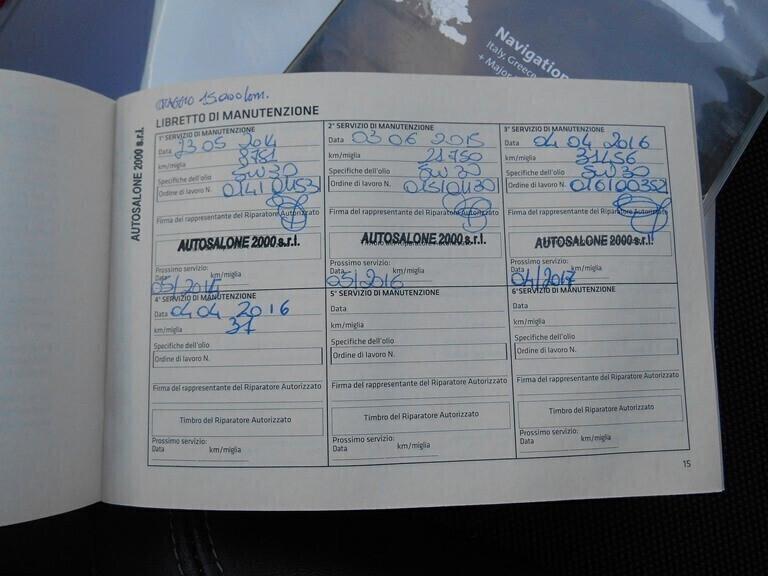 Navigation
Italy, Greece
+ Major
15000 km.
LIBRETTO DI MANUTENZIONE
AUTOSALONE 2000 s.r.l.
1° SERVIZIO DI MANUTENZIONE
Data 23 05 2014
km/miglia 9751
Specifiche dell'olio 5W30
Ordine di lavoro N.
Firma del rappresentante del Riparatore Autorizzato
AUTOSALONE 2000 s.r.l.
Prossimo servizio:
Data 05/2015 km/miglia
2° SERVIZIO DI MANUTENZIONE
Data 03 06 2015
km/miglia 21750
Specifiche dell'olio 5W30
Ordine di lavoro N. 015101130
Firma del rappresentante del Riparatore Autorizzato
AUTOSALONE 2000 s.r.l.
Prossimo servizio:
Data 05/2016 km/miglia
3° SERVIZIO DI MANUTENZIONE
Data 04 04 2016
km/miglia 31456
Specifiche dell'olio 5W30
Ordine di lavoro N. 016100352
Firma del rappresentante del Riparatore Autorizzato
AUTOSALONE 2000 s.r.l.
Prossimo servizio:
Data 04/2017 km/miglia
4° SERVIZIO DI MANUTENZIONE
Data 04 04 2016
km/miglia 31
Specifiche dell'olio
Ordine di lavoro N.
Firma del rappresentante del Riparatore Autorizzato
Timbro del Riparatore Autorizzato
Prossimo servizio:
Data km/miglia
5° SERVIZIO DI MANUTENZIONE
Data
km/miglia
Specifiche dell'olio
Ordine di lavoro N.
Firma del rappresentante del Riparatore Autorizzato
Timbro del Riparatore Autorizzato
Prossimo servizio:
Data km/miglia
6° SERVIZIO DI MANUTENZIONE
Data
km/miglia
Specifiche dell'olio
Ordine di lavoro N.
Firma del rappresentante del Riparatore Autorizzato
Timbro del Riparatore Autorizzato
Prossimo servizio:
Data km/miglia
15